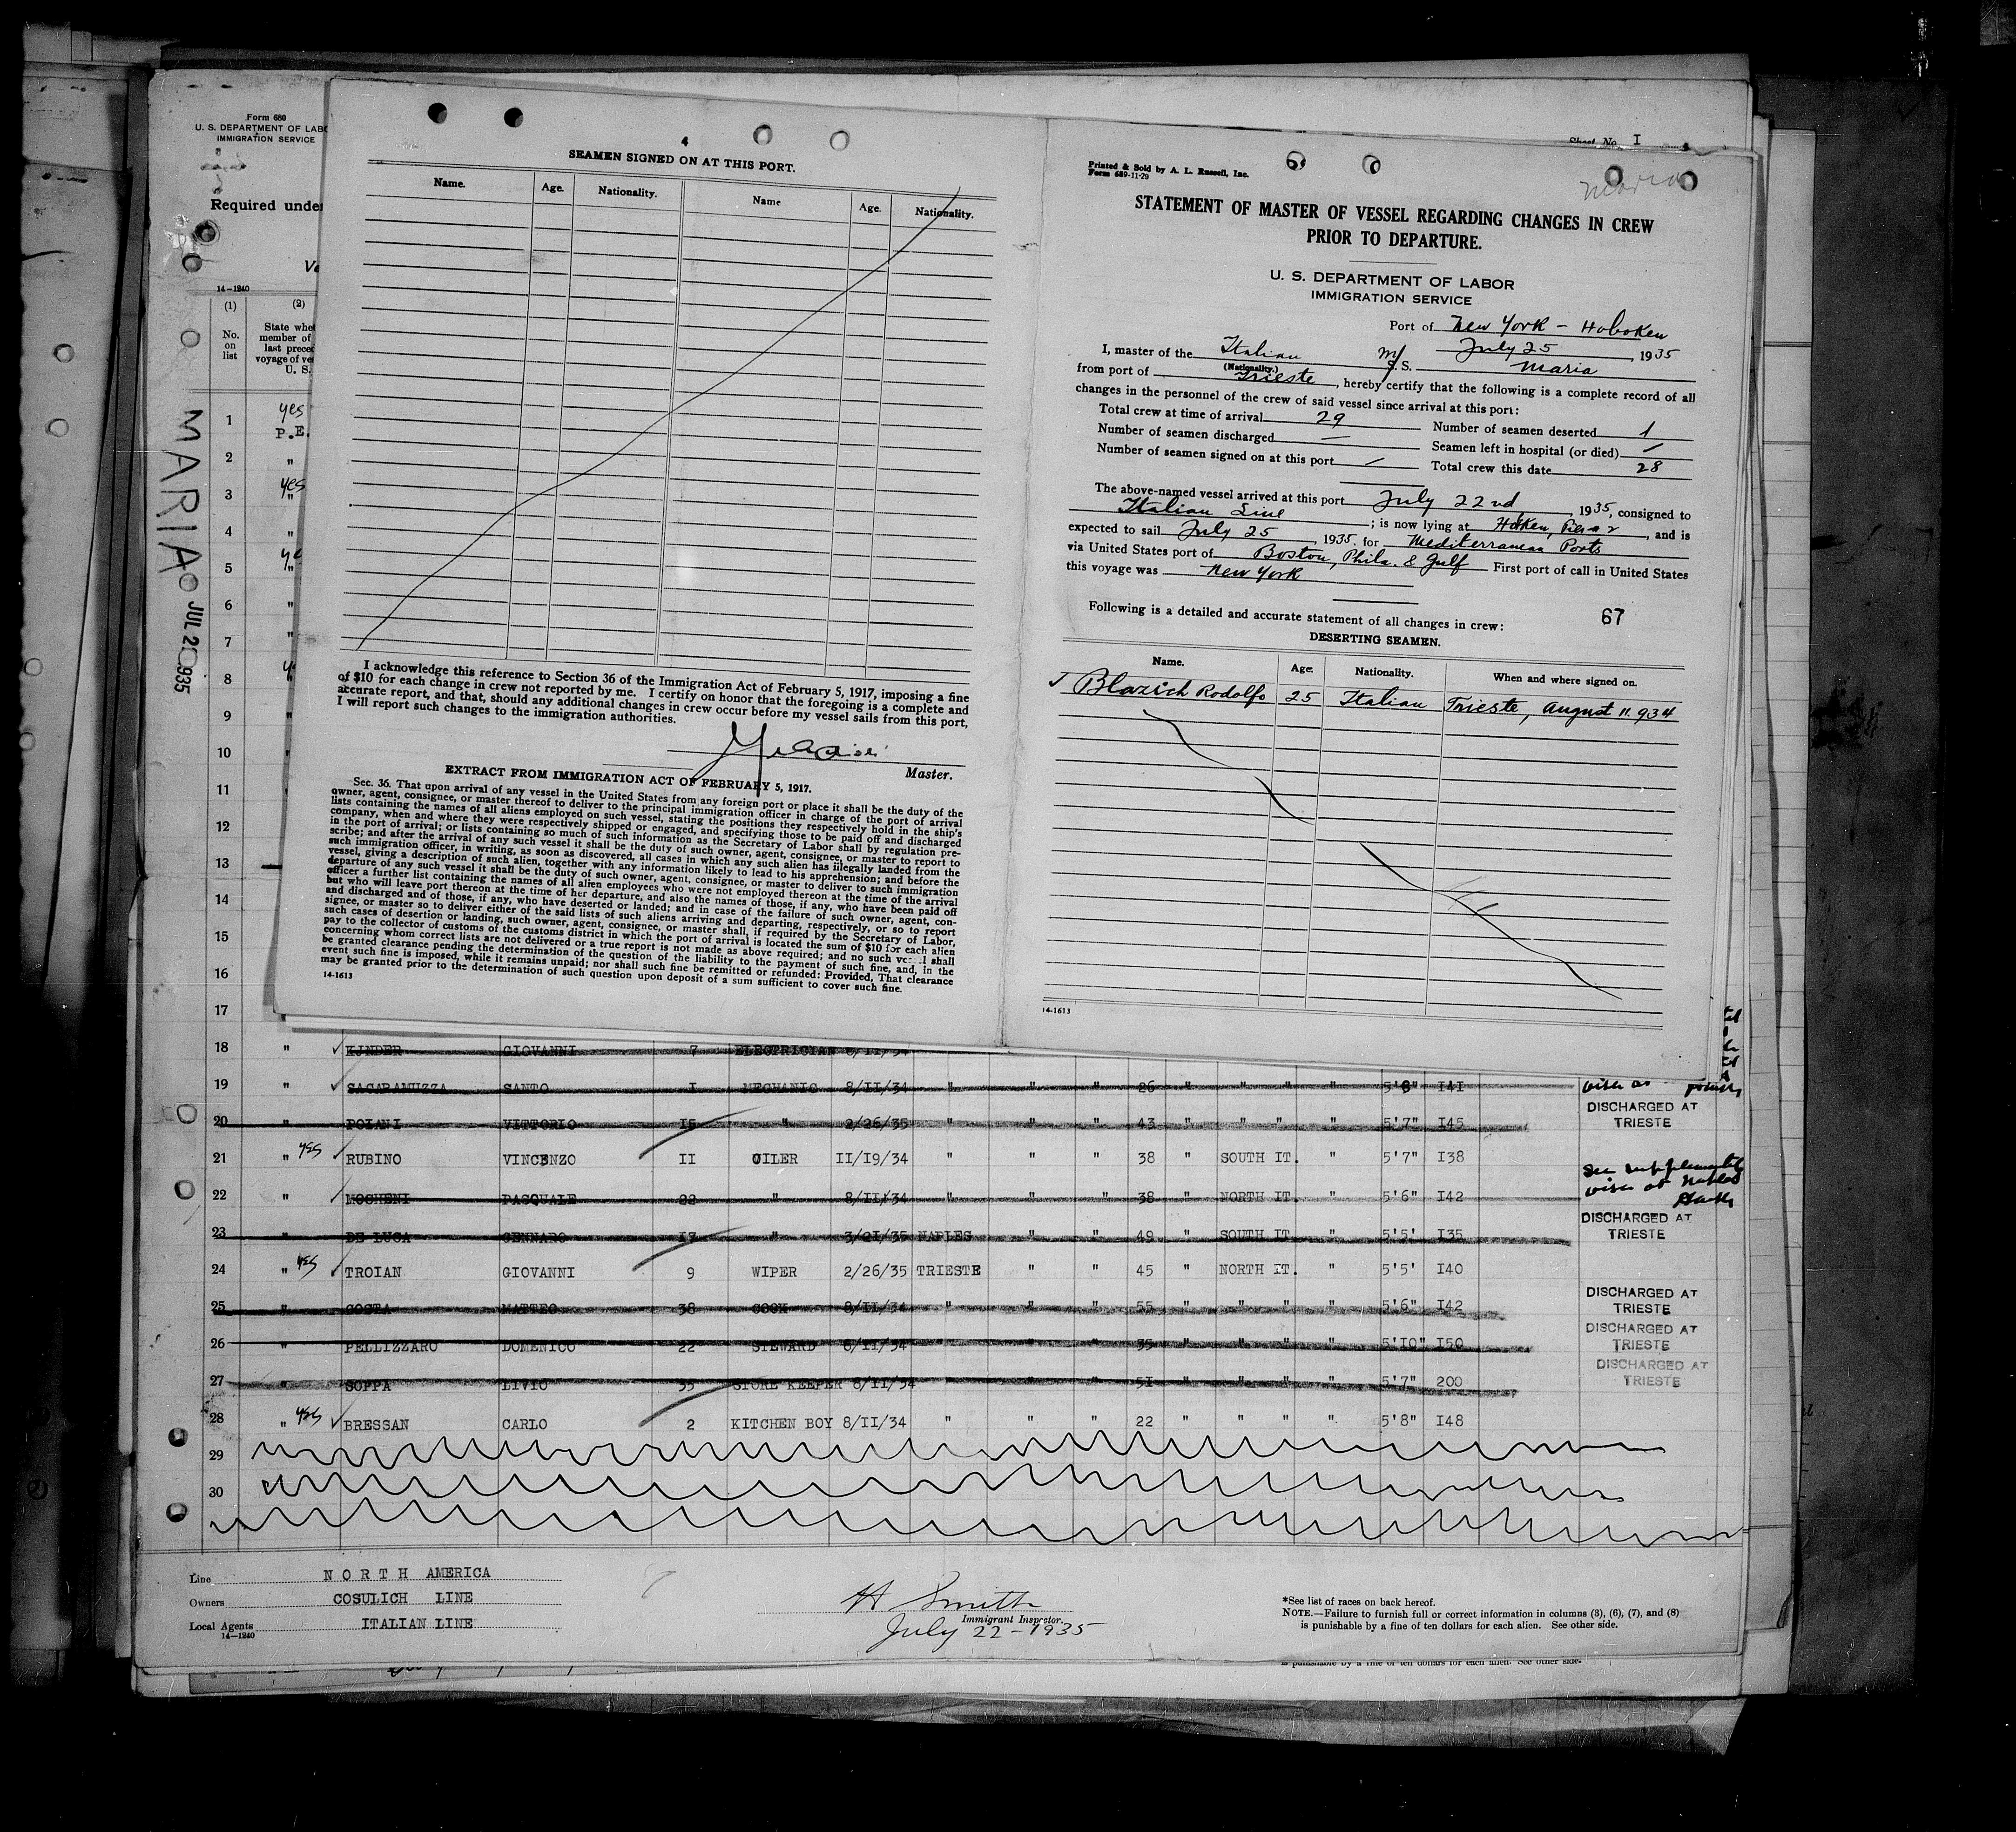 Form 680
U. S. DEPARTMENT OF LABO
IMMIGRATION SERVICE
Required under
14-1240
(1)
No.
on
list
(2)
State whe
member of
last prece
voyage of ve
U. S.
Sheet No. I
MARIA
JUL 2 1935
4
SEAMEN SIGNED ON AT THIS PORT.
Name. Age. Nationality. Name Age. Nationality.
I acknowledge this reference to Section 36 of the Immigration Act of February 5, 1917, imposing a fine
of $10 for each change in crew not reported by me. I certify on honor that the foregoing is a complete and
accurate report, and that, should any additional changes in crew occur before my vessel sails from this port,
I will report such changes to the immigration authorities.
Master.
EXTRACT FROM IMMIGRATION ACT OF FEBRUARY 5, 1917.
Sec. 36. That upon arrival of any vessel in the United States from any foreign port or place it shall be the duty of the
owner, agent, consignee, or master thereof to deliver to the principal immigration officer in charge of the port of arrival
lists containing the names of all aliens employed on such vessel, stating the positions they respectively hold in the ship's
company, when and where they were respectively shipped or engaged, and specifying those to be paid off and discharged
in the port of arrival; or lists containing so much of such information as the Secretary of Labor shall by regulation pre-
scribe; and after the arrival of any such vessel it shall be the duty of such owner, agent, consignee, or master to report to
such immigration officer, in writing, as soon as discovered, all cases in which any such alien has illegally landed from the
vessel, giving a description of such alien, together with any information likely to lead to his apprehension; and before the
departure of any such vessel it shall be the duty of such owner, agent, consignee, or master to deliver to such immigration
officer a further list containing the names of all alien employees who were not employed thereon at the time of the arrival
but who will leave port thereon at the time of her departure, and also the names of those, if any, who have been paid off
and discharged and of those, if any, who have deserted or landed; and in case of the failure of such owner, agent, con-
signee, or master so to deliver either of the said lists of such aliens arriving and departing, respectively, or so to report
such cases of desertion or landing, such owner, agent, consignee, or master shall, if required by the Secretary of Labor,
pay to the collector of customs of the customs district in which the port of arrival is located the sum of $10 for each alien
concerning whom correct lists are not delivered or a true report is not made as above required; and no such vessel shall
be granted clearance pending the determination of the question of the liability to the payment of such fine, and, in the
event such fine is imposed, while it remains unpaid; nor shall such fine be remitted or refunded: Provided, That clearance
may be granted prior to the determination of such question upon deposit of a sum sufficient to cover such fine.
14-1613
Printed & Sold by A. L. Russell, Inc.
Form 689-11-29
Maria
STATEMENT OF MASTER OF VESSEL REGARDING CHANGES IN CREW
PRIOR TO DEPARTURE.
U. S. DEPARTMENT OF LABOR
IMMIGRATION SERVICE
Port of New York - Hoboken
July 25, 1935
I, master of the Italian M/ S. S. Maria
(Nationality.)
from port of Trieste, hereby certify that the following is a complete record of all
changes in the personnel of the crew of said vessel since arrival at this port:
Total crew at time of arrival 29 Number of seamen deserted 1
Number of seamen discharged — Seamen left in hospital (or died) /
Number of seamen signed on at this port / Total crew this date 28
The above-named vessel arrived at this port July 22nd, 1935, consigned to
Italian Line; is now lying at Hoken, Pier 2, and is
expected to sail July 25, 1935. for Mediterranean Ports
via United States port of Boston, Phila. & Gulf First port of call in United States
this voyage was New York
Following is a detailed and accurate statement of all changes in crew: 67
DESERTING SEAMEN.
Name. Age. Nationality. When and where signed on.
Blazich Rodolfo 25 Italian Trieste, August 11. 934
14-1613
1 yes
P.E.
2 "
3 yes "
4 "
5 "
6 "
7 "
8
9 "
10 "
11 "
12 "
13
14
15
16
17
18 " ✓ KINDER GIOVANNI 7 ELECTRICIAN 8/II/34
19 " ✓ SACARAMUZZA SANTO I MECHANIC 8/II/34 " " " 26 " " " " 5'8" I4I
20 " POIANI VITTORIO I5 " 2/26/35 " " " 43 " " " " 5'7" I45 DISCHARGED AT TRIESTE
21 " yes ✓ RUBINO VINCENZO II OILER II/I9/34 " " " 38 " SOUTH IT. " 5'7" I38
22 " ✓ MOCHENI PASQUALE 22 " 8/II/34 " " " 38 " NORTH IT. " 5'6" I42 See supplemental visa at Naples
23 " DE LUCA GENNARO I7 " 3/2I/35 NAPLES " " 49 " SOUTH IT " 5'5' I35 DISCHARGED AT TRIESTE
24 " yes ✓ TROIAN GIOVANNI 9 WIPER 2/26/35 TRIESTE " " 45 " NORTH IT. " 5'5' I40
25 " COSTA MATTEO 38 COOK 8/II/34 " " " 55 " " " " 5'6" I42 DISCHARGED AT TRIESTE
26 " PELLIZZARO DOMENICO 22 STEWARD 8/II/34 " " " 35 " " " " 5'I0" I50 DISCHARGED AT TRIESTE
27 " SOPPA LIVIO 35 STORE KEEPER 8/II/34 " " " 5I " " " " 5'7" 200 DISCHARGED AT TRIESTE
28 " yes ✓ BRESSAN CARLO 2 KITCHEN BOY 8/II/34 " " " 22 " " " " 5'8" I48
29
30
Line NORTH AMERICA
Owners COSULICH LINE
Local Agents ITALIAN LINE
14-1240
H Smith
Immigrant Inspector.
July 22-1935
*See list of races on back hereof.
NOTE.—Failure to furnish full or correct information in columns (3), (6), (7), and (8)
is punishable by a fine of ten dollars for each alien. See other side.
is punishable by a fine of ten dollars for each alien. See other side.